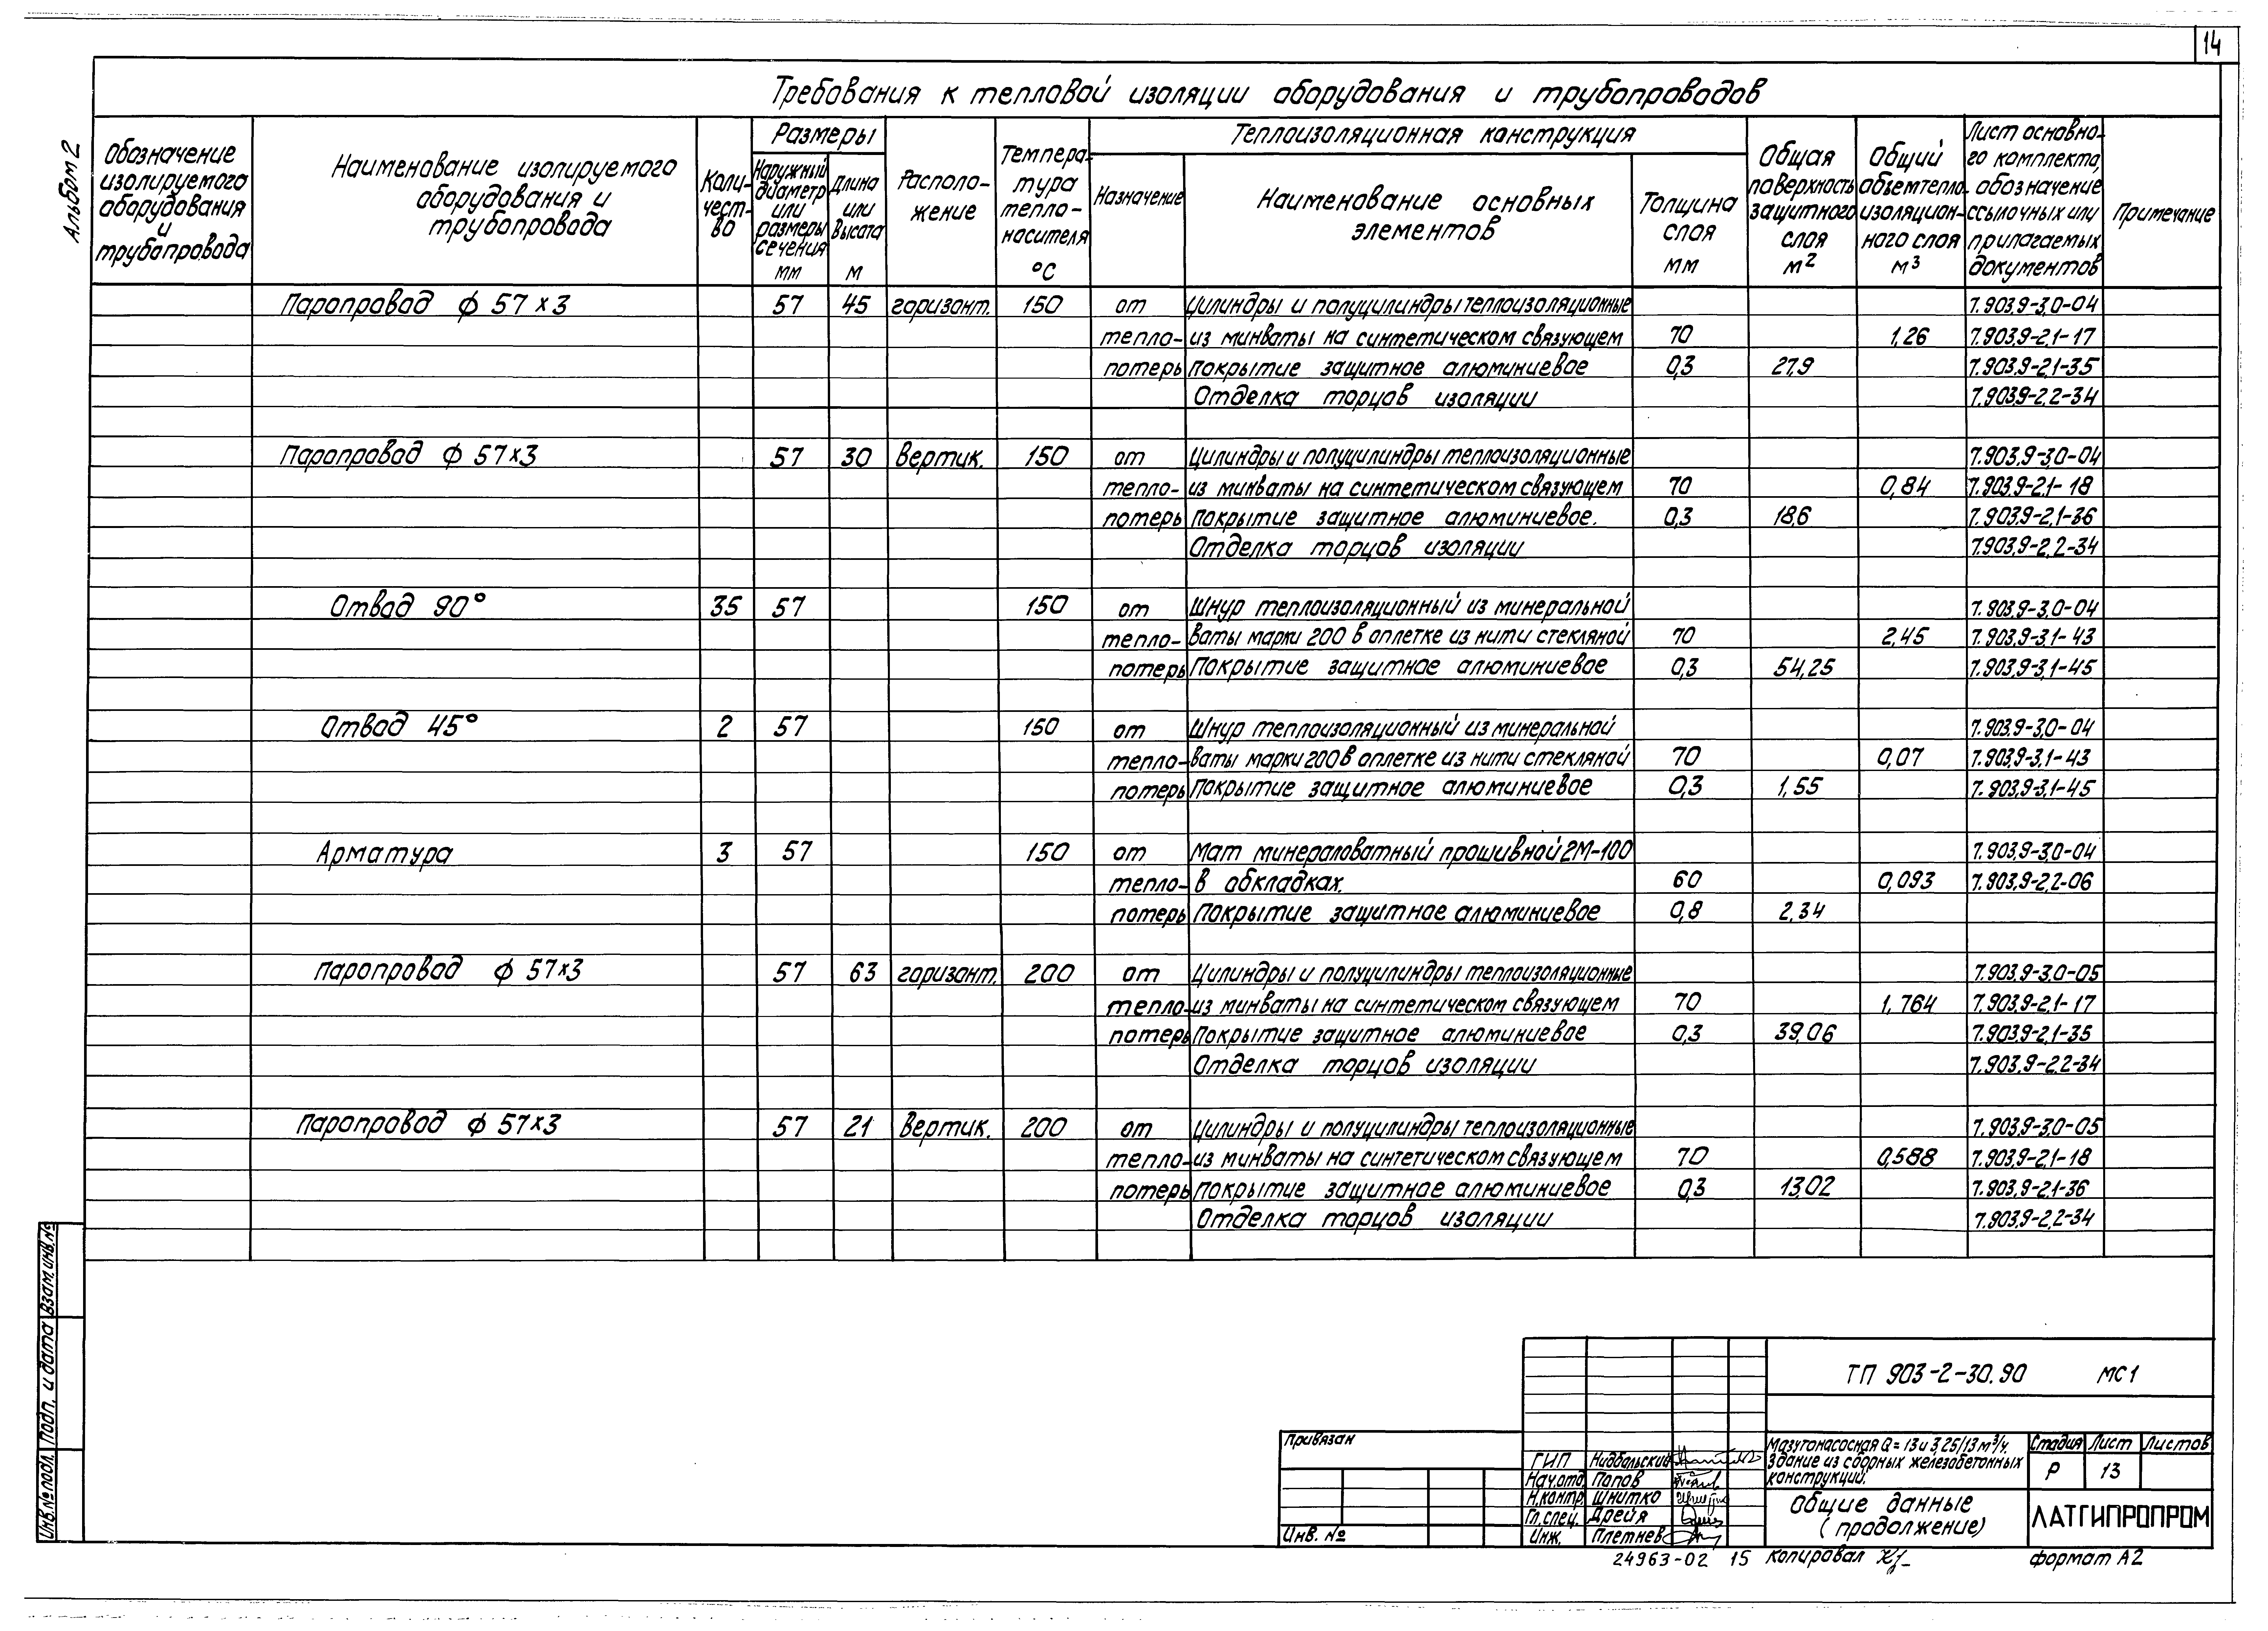 14
Альбом 2
Требования к тепловой изоляции оборудования и трубопроводов
Обозначение изолируемого оборудования и трубопровода
Наименование изолируемого оборудования и трубопровода
Коли-чест-во
Размеры
Наружный диаметр или размеры сечения мм
Длина или высота м
Располо-жение
Темпера-тура тепло-носителя °С
Теплоизоляционная конструкция
Назначение
Наименование основных элементов
Толщина слоя мм
Общая поверхность защитного слоя м²
Общий объем тепло-изоляцион-ного слоя м³
Лист основно-го комплекта, обозначение ссылочных или прилагаемых документов
Примечание
Паропровод ф 57×3 57 45 горизонт. 150 от Цилиндры и полуцилиндры теплоизоляционные 7.903.9-3.0-04
тепло- из минваты на синтетическом связующем 70 1,26 7.903.9-2.1-17
потерь Покрытие защитное алюминиевое 0,3 27,9 7.903.9-2.1-35
Отделка торцов изоляции 7.903.9-2.2-34
Паропровод ф 57×3 57 30 вертик. 150 от Цилиндры и полуцилиндры теплоизоляционные 7.903.9-3.0-04
тепло- из минваты на синтетическом связующем 70 0,84 7.903.9-2.1-18
потерь Покрытие защитное алюминиевое. 0,3 18,6 7.903.9-2.1-36
Отделка торцов изоляции 7.903.9-2.2-34
Отвод 90° 35 57 150 от Шнур теплоизоляционный из минеральной 7.903.9-3.0-04
тепло- ваты марки 200 в оплетке из нити стекляной 70 2,45 7.903.9-3.1-43
потерь Покрытие защитное алюминиевое 0,3 54,25 7.903.9-3.1-45
Отвод 45° 2 57 150 от Шнур теплоизоляционный из минеральной 7.903.9-3.0-04
тепло- ваты марки 200 в оплетке из нити стекляной 70 0,07 7.903.9-3.1-43
потерь Покрытие защитное алюминиевое 0,3 1,55 7.903.9-3.1-45
Арматура 3 57 150 от Мат минераловатный прошивной 2М-100 7.903.9-3.0-04
тепло- в обкладках. 60 0,093 7.903.9-2.2-06
потерь Покрытие защитное алюминиевое 0,8 2,34
Паропровод ф 57×3 57 63 горизонт. 200 от Цилиндры и полуцилиндры теплоизоляционные 7.903.9-3.0-05
тепло- из минваты на синтетическом связующем 70 1,764 7.903.9-2.1-17
потерь Покрытие защитное алюминиевое 0,3 39,06 7.903.9-2.1-35
Отделка торцов изоляции 7.903.9-2.2-34
Паропровод ф 57×3 57 21 вертик. 200 от Цилиндры и полуцилиндры теплоизоляционные 7.903.9-3.0-05
тепло- из минваты на синтетическом связующем 70 0,588 7.903.9-2.1-18
потерь Покрытие защитное алюминиевое 0,3 13,02 7.903.9-2.1-36
Отделка торцов изоляции 7.903.9-2.2-34
Инв.№ подл. Подп. и дата Взам. инв. №
Привязан
Инв. №
ТП 903-2-30.90 МС1
ГИП Нидбальский
Нач.отд. Попов
Н.контр. Шнитко
Гл.спец. Дрейя
Инж. Плетнев
Мазутонасосная Q = 13 и 3,25/13 м³/ч.
Здание из сборных железобетонных
конструкций.
Стадия Лист Листов
Р 13
Общие данные
(продолжение)
ЛАТГИПРОПРОМ
24963-02 15 копировал формат А2